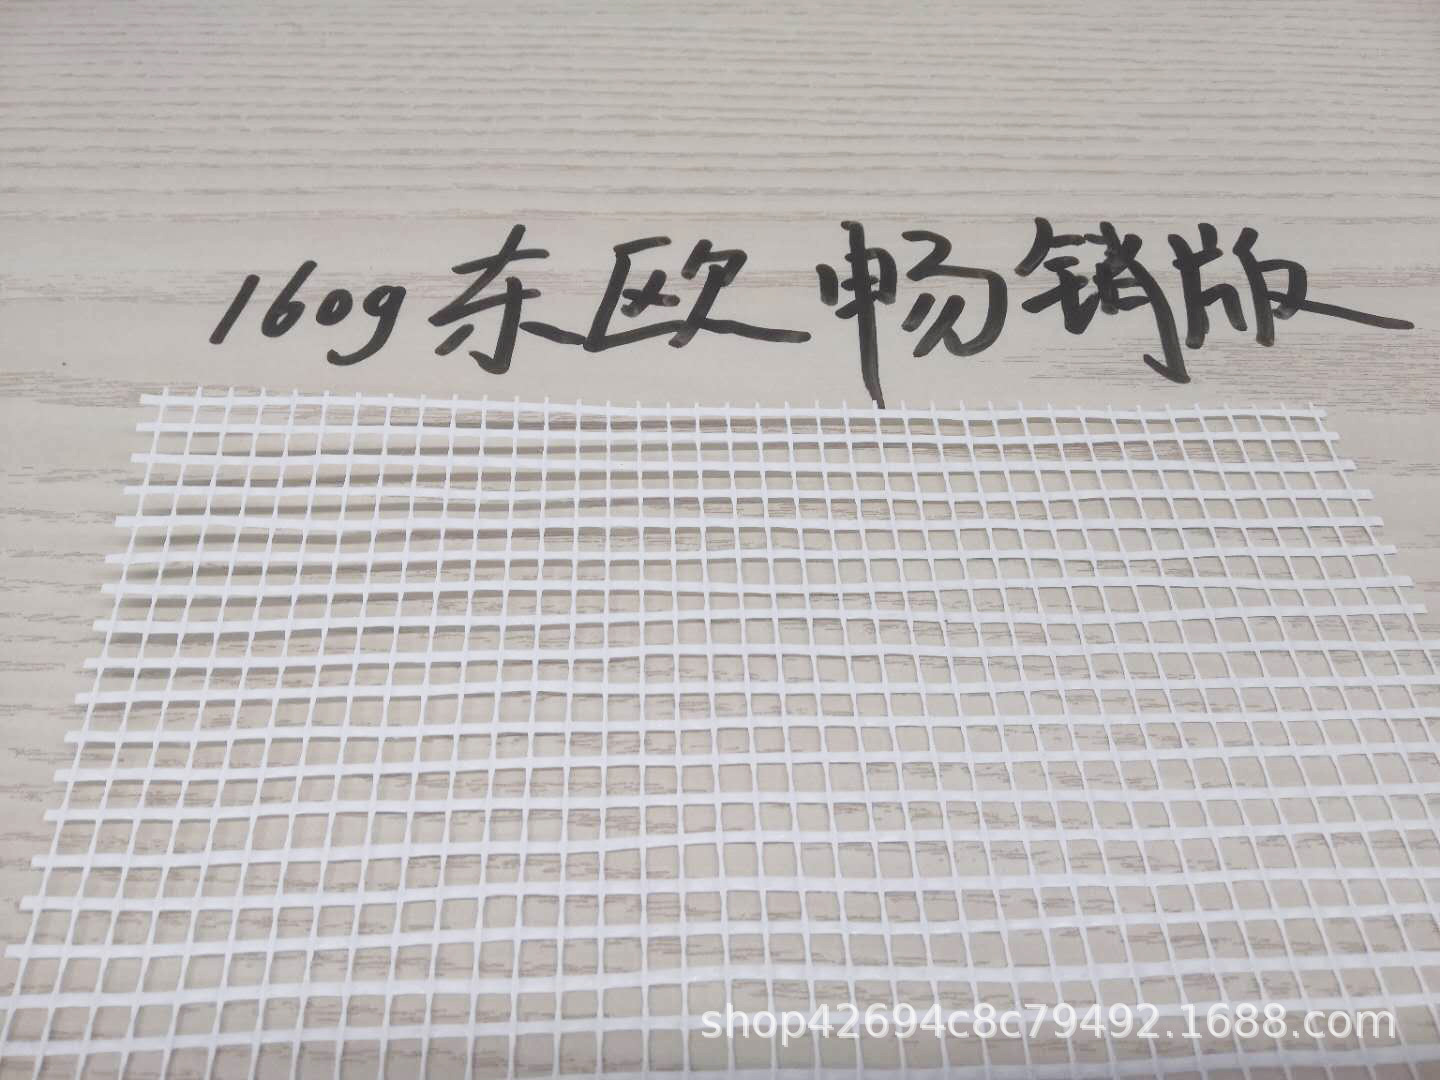 160g东欧畅销版
shop42694c8c79492.1688.com